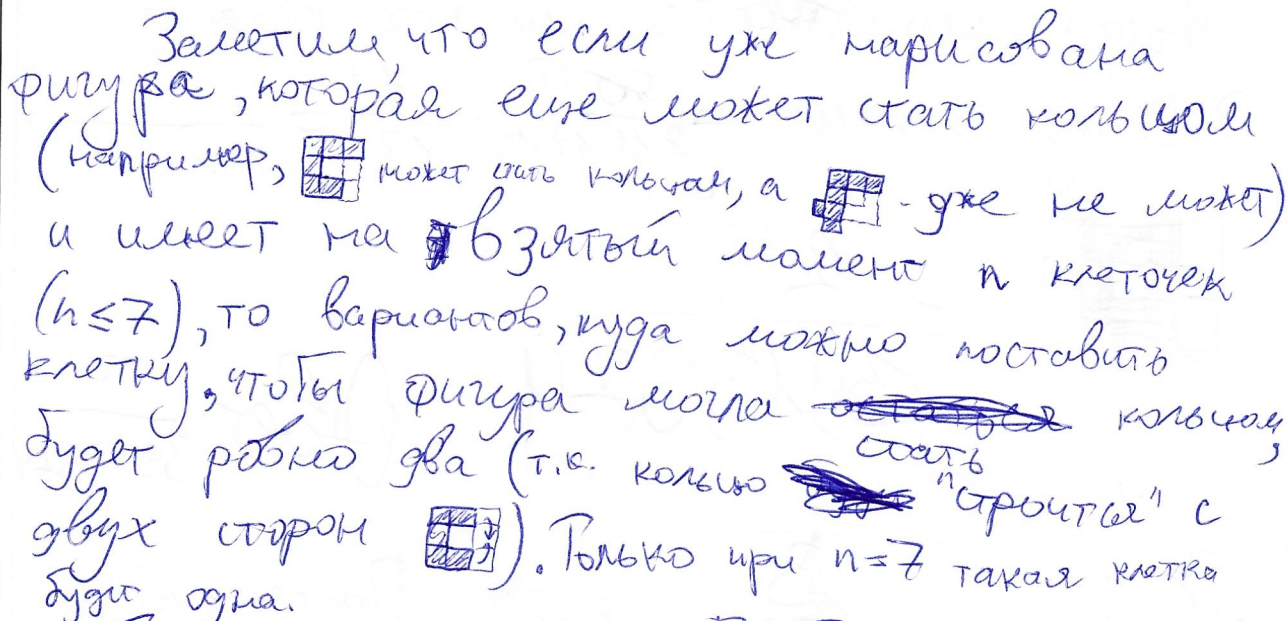 Заметим, что если уже нарисована
фигура, которая еще может стать кольцом
(например, может стать кольцом, а - уже не может)
и имеет на взятый момент n клеточек
(n≤7), то вариантов, куда можно поставить
клетку, чтобы фигура могла стать кольцом,
будет ровно два (т.к. кольцо "строится" с
двух сторон ). Только при n=7 такая клетка
будет одна.